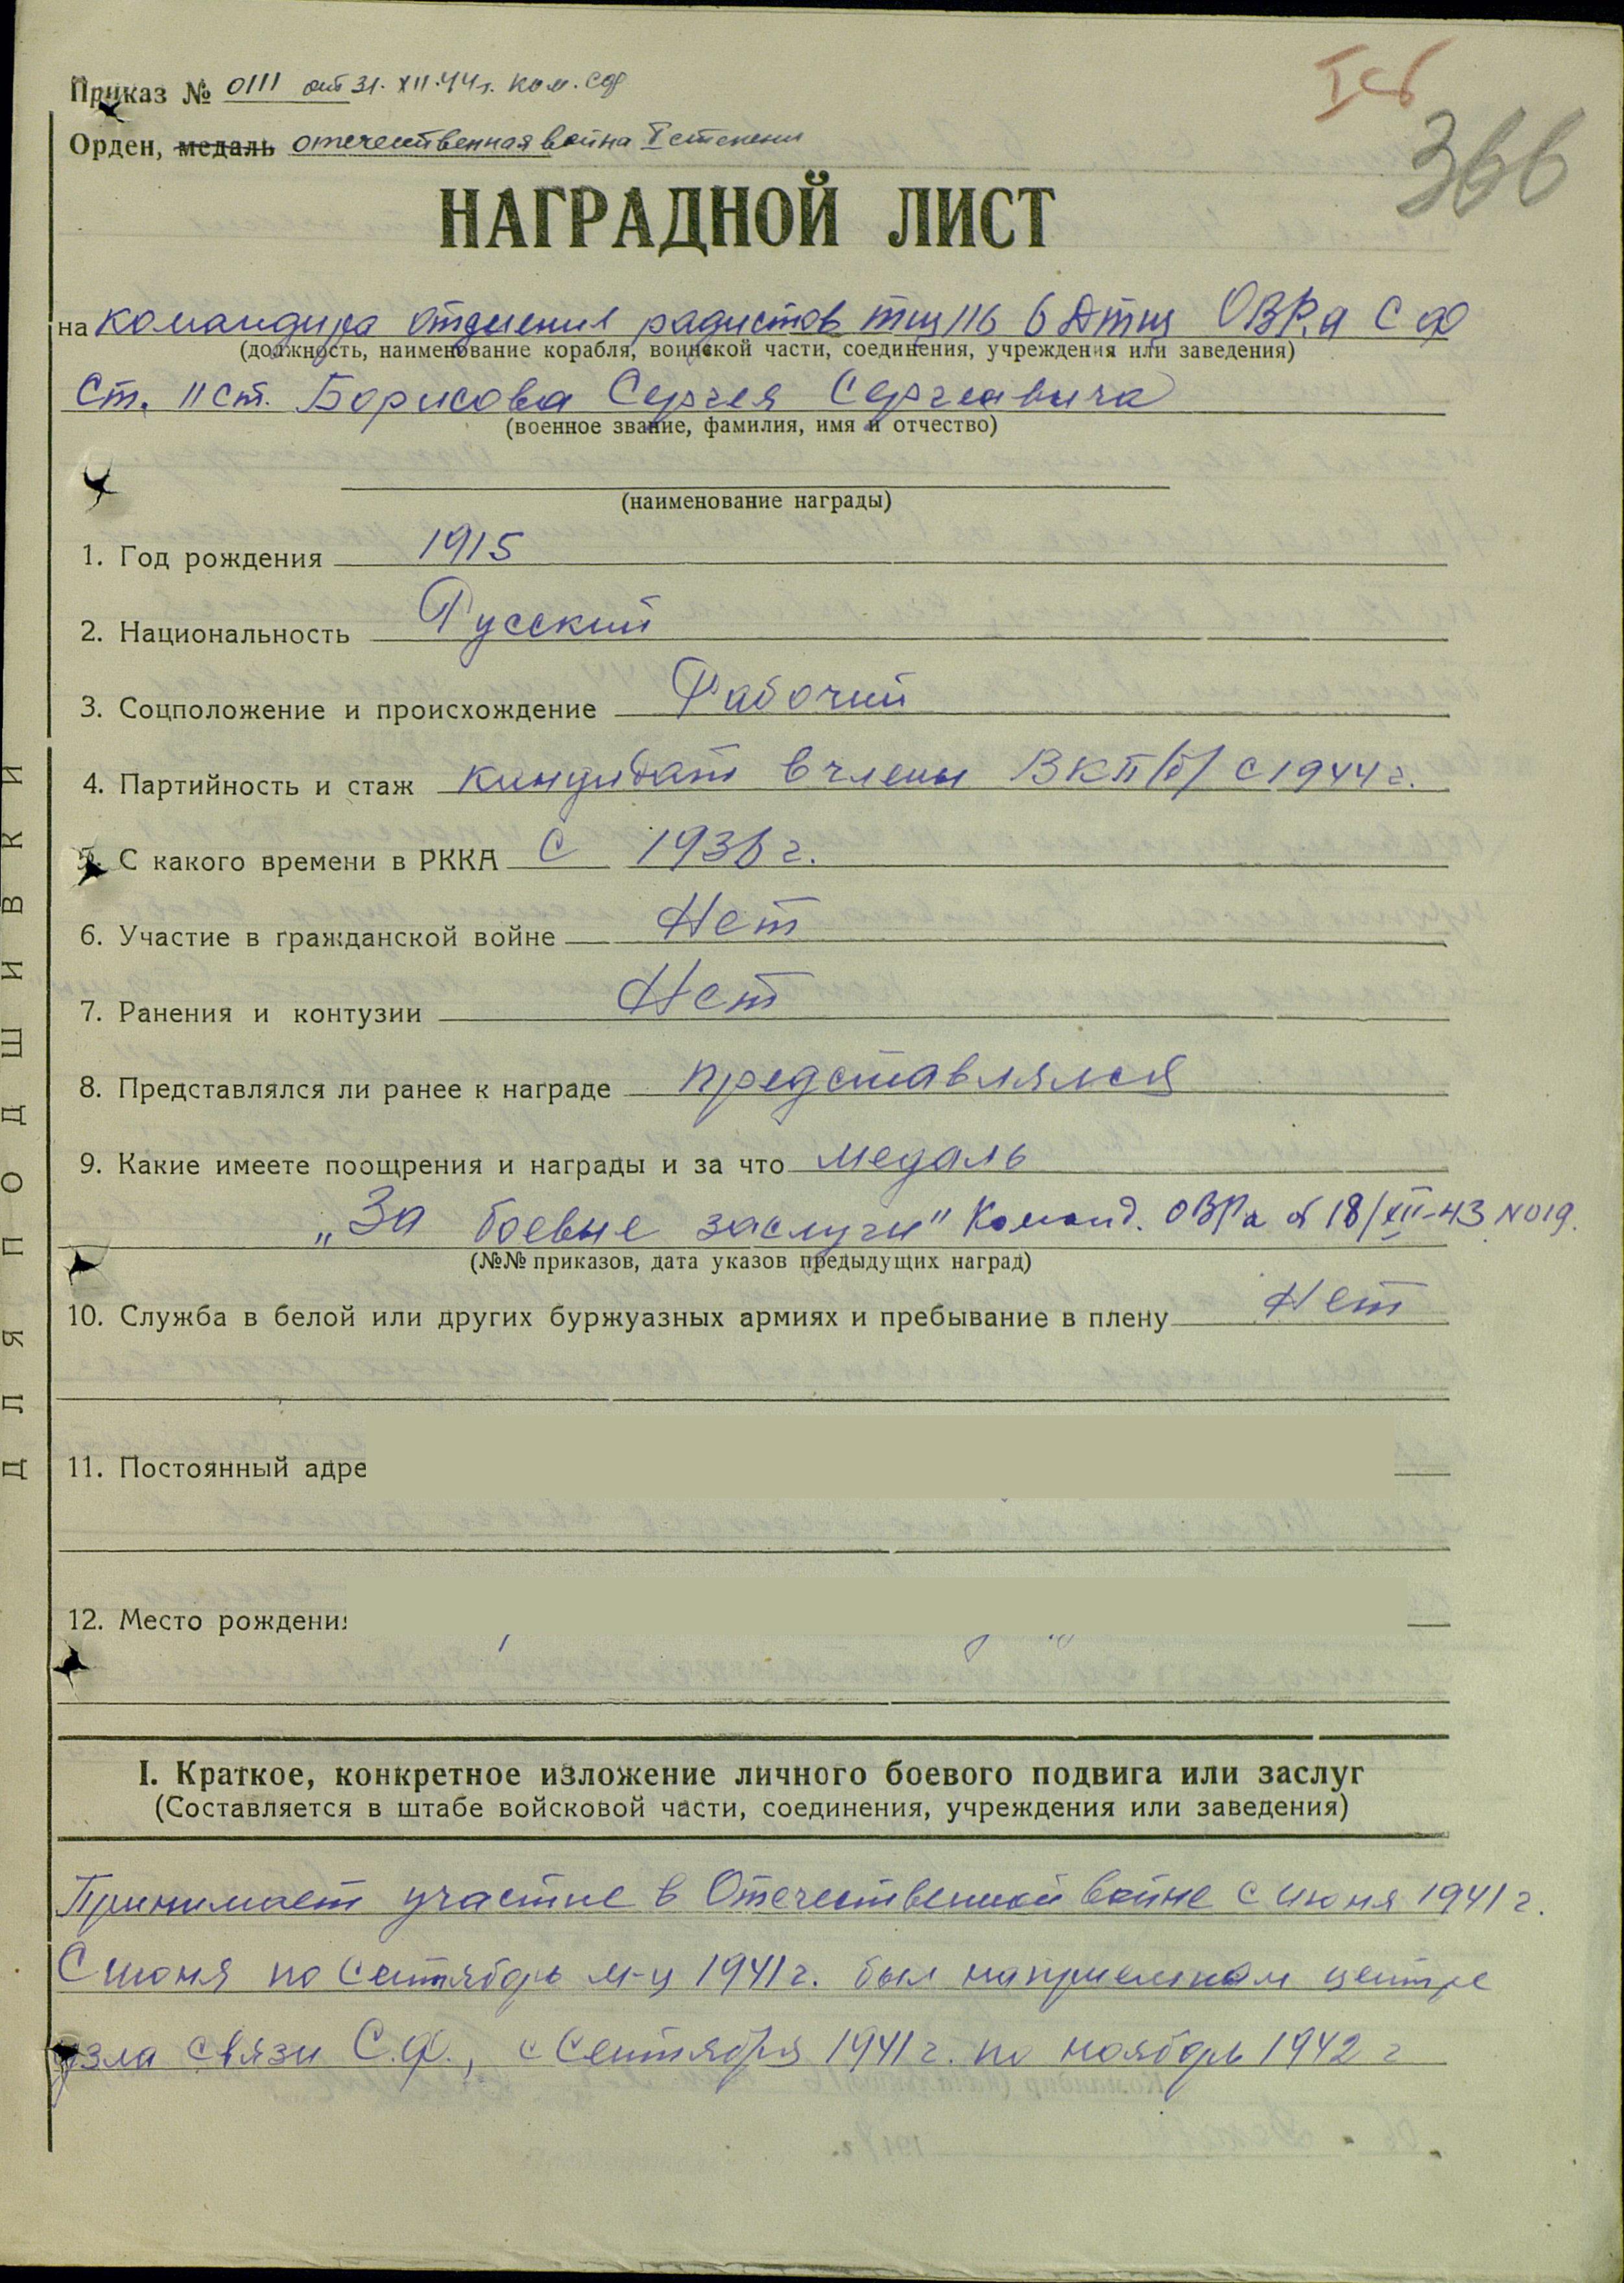 Приказ № 0111 от 31.XII.44г. ком. СФ
Iсб
366
Орден, медаль отечественная война I степени
НАГРАДНОЙ ЛИСТ
на командира отделения радистов тщ 116 6 Дтщ ОВРа СФ
(должность, наименование корабля, воинской части, соединения, учреждения или заведения)
Ст. II ст. Борисова Сергея Сергеевича
(военное звание, фамилия, имя и отчество)
(наименование награды)
1. Год рождения 1915
2. Национальность Русский
3. Соцположение и происхождение Рабочий
4. Партийность и стаж кандидат в члены ВКП/б/ с 1944 г.
5. С какого времени в РККА с 1936 г.
6. Участие в гражданской войне Нет
7. Ранения и контузии Нет
8. Представлялся ли ранее к награде представлялся
9. Какие имеете поощрения и награды и за что медаль
„За боевые заслуги" Команд. ОВРа от 18/XII-43 №019.
(№№ приказов, дата указов предыдущих наград)
10. Служба в белой или других буржуазных армиях и пребывание в плену Нет
11. Постоянный адре
12. Место рождени
I. Краткое, конкретное изложение личного боевого подвига или заслуг
(Составляется в штабе войсковой части, соединения, учреждения или заведения)
Принимает участие в Отечественной войне с июня 1941 г.
С июня по сентябрь м-ц 1941 г. был на приемном центре
узла связи С.Ф., с сентября 1941 г. по ноябрь 1942 г
ДЛЯ ПОДШИВКИ